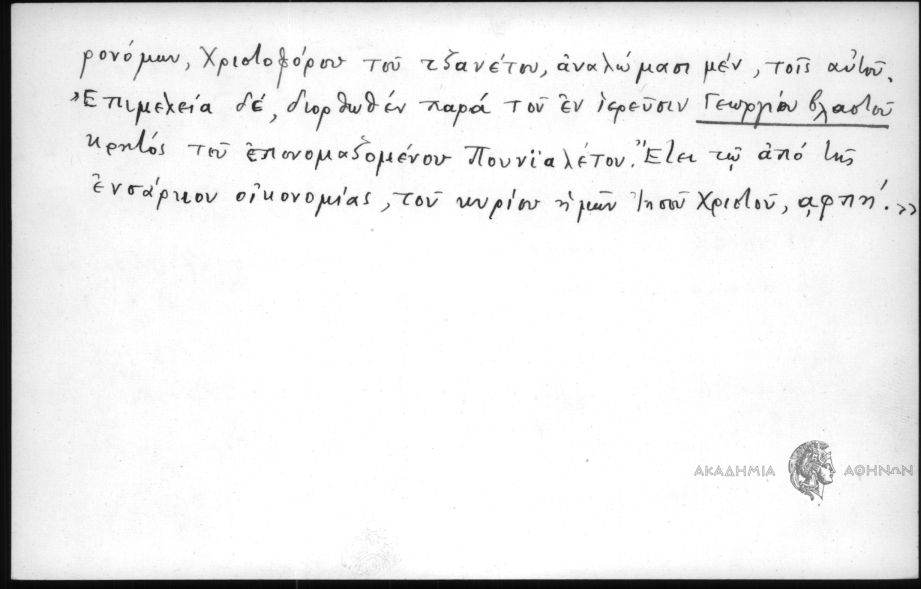 ρονόμων, Χριστοφόρου τοῦ τζανέτου, ἀναλώμασι μέν, τοῖς αὐτοῦ.
Ἐπιμελεία δέ, διορθωθέν παρά τοῦ ἐν ἱερεῦσιν Γεωργίου βλαστοῦ
κρητός τοῦ ἐπονομαζομένου Πουνϊαλέτου. Ἔτει τῷ ἀπό τῆς
ἐνσάρκου οἰκονομίας, τοῦ κυρίου ἡμῶν Ἰησοῦ Χριστοῦ, ͵αφπη΄.»
ΑΚΑΔΗΜΙΑ ΑΘΗΝΩΝ